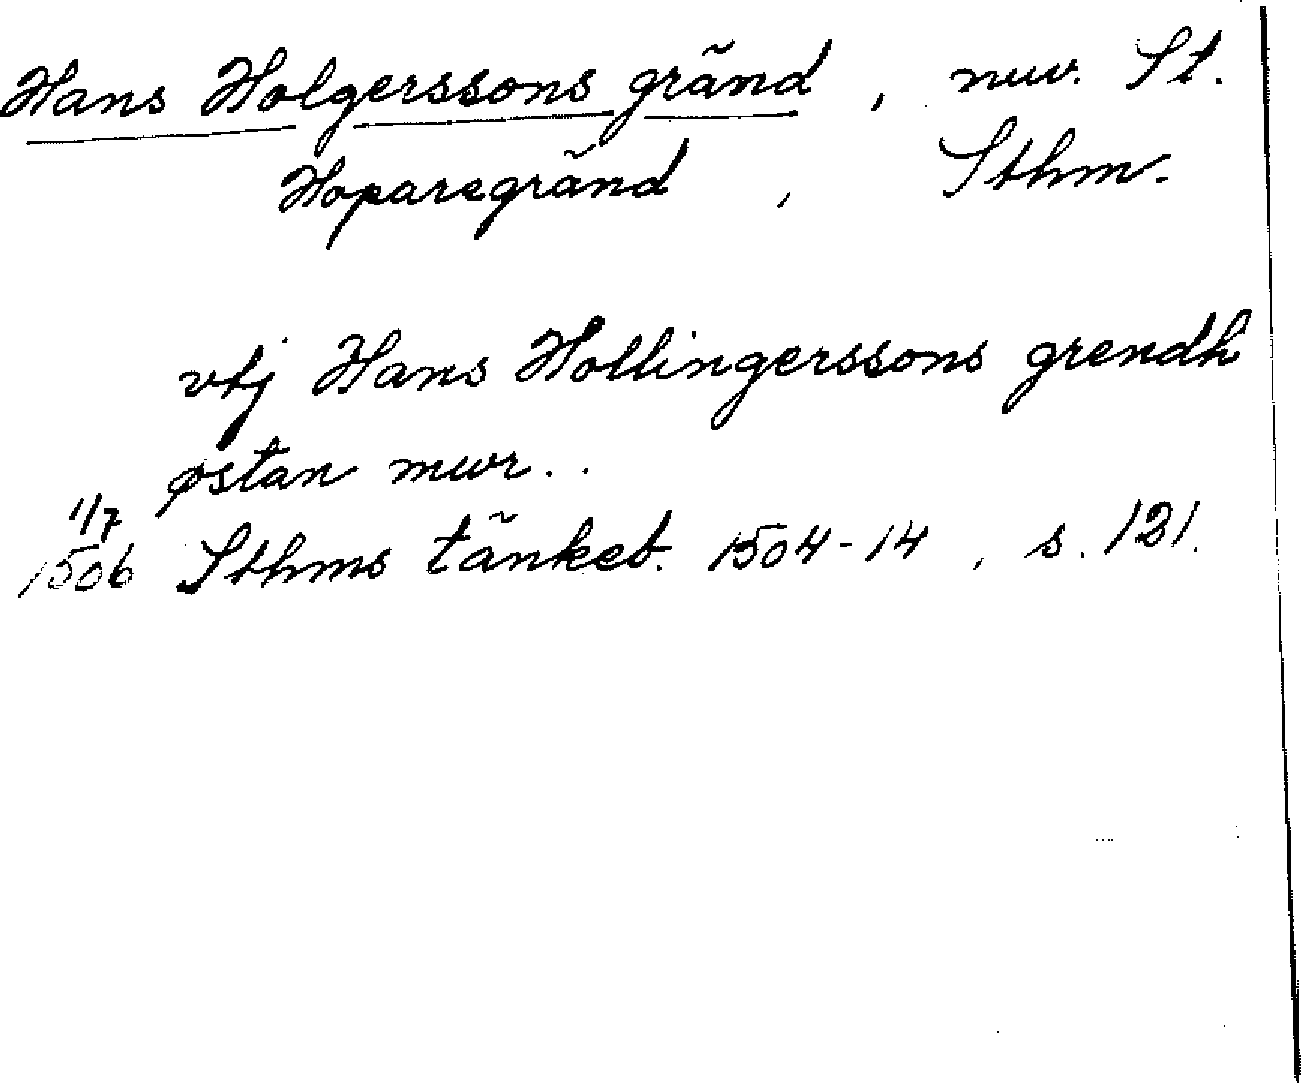 Hans Holgerssons gränd, nuv. St.
Hoparegränd, Sthm.
vtj Hans Hollingerssons grendh
østan mwr..
1/7
1506 Sthms tänkeb. 1504-14, s. 121.